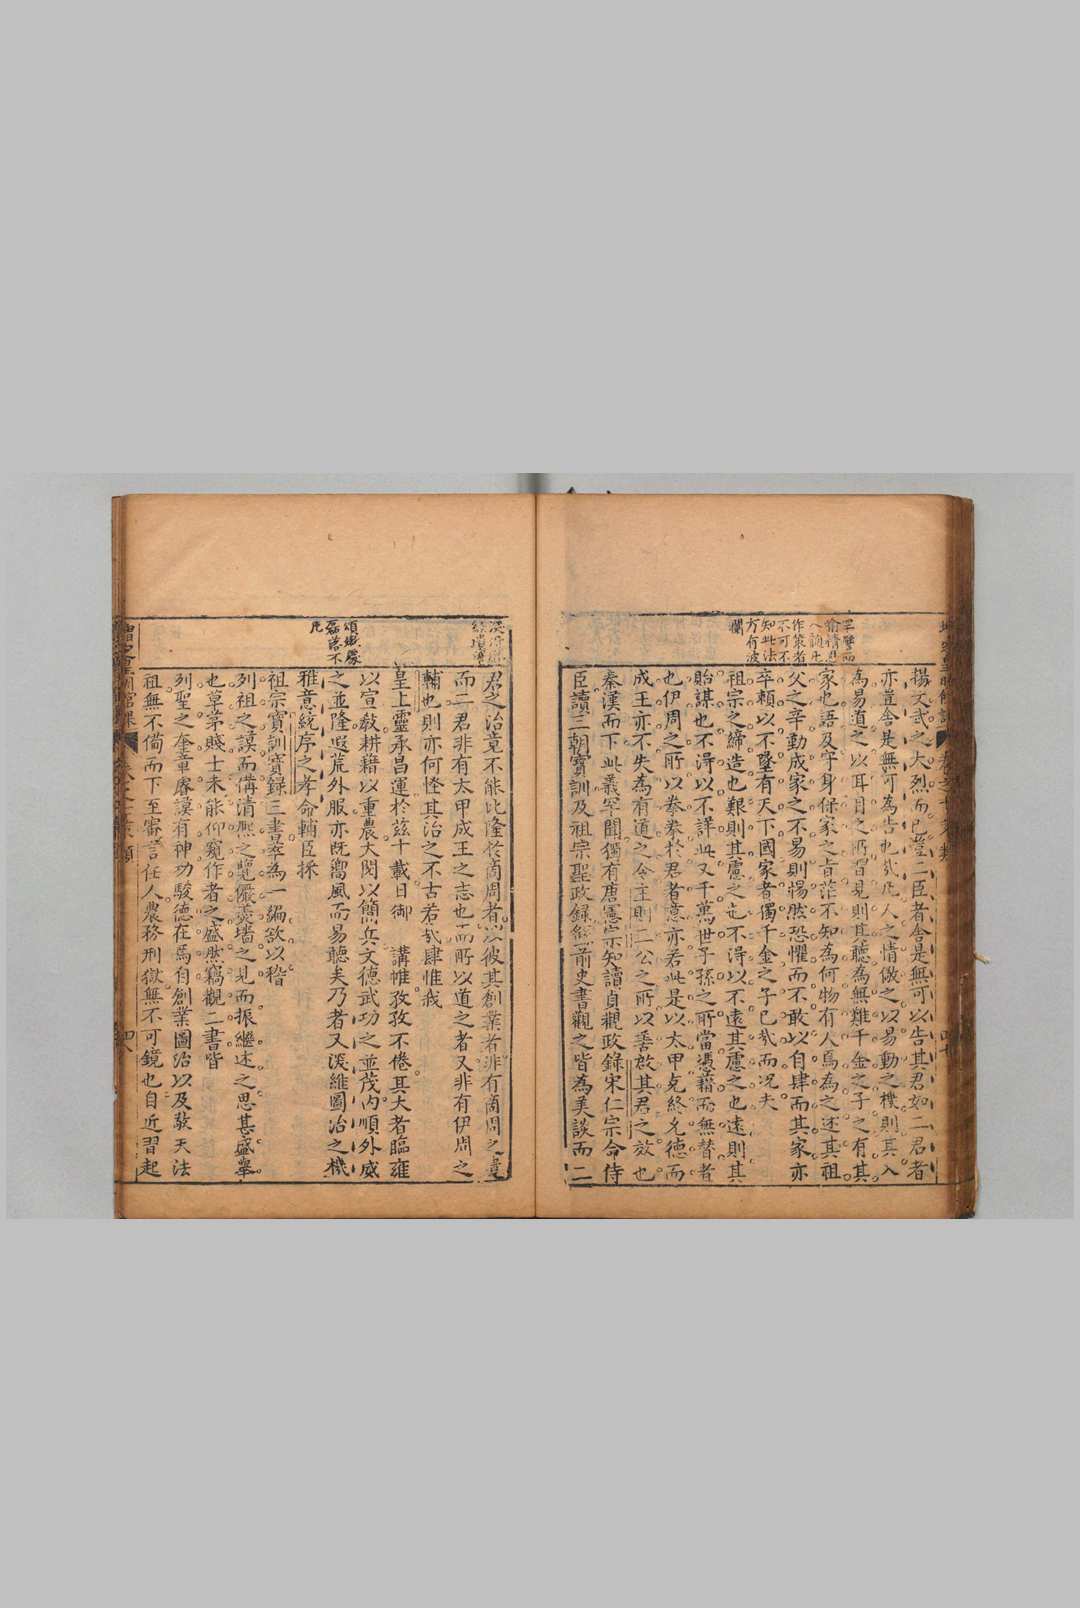 揚文武之大烈而已豈二臣者舍是無可以告其君如二君者
亦豈舍是無可為告也哉凡人之情倣之以易動之機則其入
為易道之以耳目之所習見則其聽為無難千金之子之有其
家也語及守身保家之旨茫不知為何物有人焉為之述其祖
父之辛勤成家之不易則惕然恐懼而不敢以自肆而其家亦
卒賴以不墜有天下國家者獨千金之子已哉而况夫
祖宗之締造也艱則其慮之也不得以不遠其慮之也遠則其
貽謀也不得以不詳此又千萬世子孫之所當憑藉而無替者
也伊周之所以拳拳於君者意亦若此是以太甲克終允德而
成王亦不失為有道之令主則二公之所以善啟其君之效也
秦漢而下此義罕聞獨有唐憲宗知讀貞觀政錄宋仁宗命侍
臣讀三朝寳訓及祖宗聖政錄繇前史書觀之皆為美談而二
罕譬而
喻情思
入韻凡
作策者
不可不
知此法
方有波
瀾
君之治竟不能比隆於商周者以彼其創業者非有商周之
而二君非有太甲成王之志也而所以道之者又非有伊周之
輔也則亦何怪其治之不古若哉肆惟我
皇上靈承昌運於茲十載日御 講帷孜孜不倦耳大者臨雍
以宣教耕藉以重農大閱以簡兵文德武功之並茂內順外威
之並隆遐荒外服亦既嚮風而易聽矣乃者又渙維圖治之機
雅意統序之孝命輔臣採
祖宗寳訓寳錄三書萃為一編欲以稽
列祖之謨而備清熈之覽儼羹墻之見而振繼述之思甚盛舉
也草茅賤士未能仰窺作者之盛然竊觀二書皆
列聖之奎章睿謨有神功駿德在焉自創業圖治以及敬天法
祖無不備而下至審言任人農務刑獄無不可鏡也自近習起
頌揚處
磊落不
凡